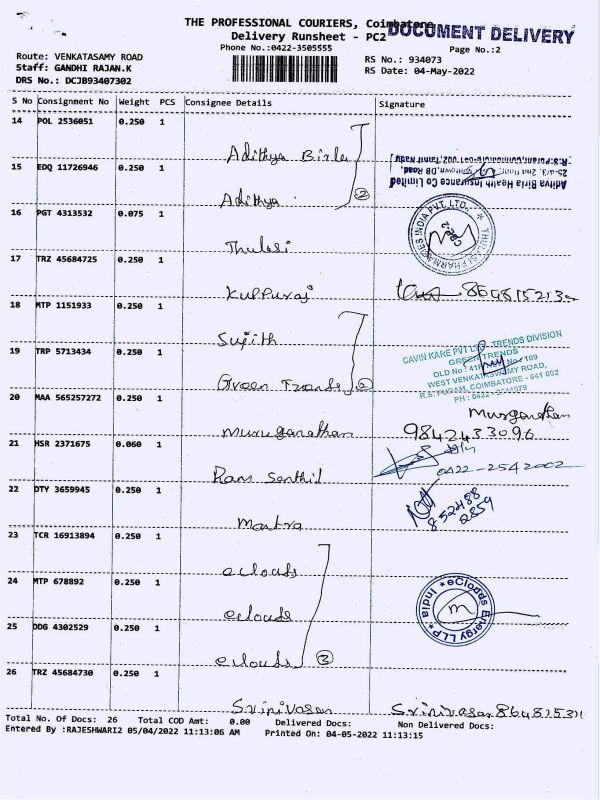 THE PROFESSIONAL COURIERS, Coimbatore
DOCUMENT DELIVERY
Delivery Runsheet - PC2
Phone No.:0422-3505555
Page No.:2
Route: VENKATASAMY ROAD
RS No.: 934073
Staff: GANDHI RAJAN.K
RS Date: 04-May-2022
DRS No.: DCJB93407302
S No Consignment No Weight PCS Consignee Details Signature
14 POL 2536051 0.250 1
Adithya Birla
15 EDQ 11726946 0.250 1
Adithya 2
Aditya Birla Health Insurance Co Limited
16 PGT 4313532 0.075 1
Thulasi
17 TRZ 45684725 0.250 1
Kuppuraj
18 MTP 1151933 0.250 1
Sujith
19 TRP 5713434 0.250 1
Green Trends 2
CAVIN KARE PVT LTD TRENDS DIVISION
GREEN TRENDS
WEST VENKATASWAMY ROAD,
R.S. PURAM, COIMBATORE - 641 002
20 MAA 565257272 0.250 1
Muruganathan
9842433096
21 HSR 2371675 0.060 1
Ram Senthil
0422-2542002
22 DTY 3659945 0.250 1
Mantra
852488
2859
23 TCR 16913894 0.250 1
eclouds
24 MTP 678892 0.250 1
eclouds
25 DDG 4302529 0.250 1
eclouds 3
*eClouds Energy LLP* India
26 TRZ 45684730 0.250 1
Srinivasan
Srinivasan
Total No. Of Docs: 26 Total COD Amt: 0.00 Delivered Docs: Non Delivered Docs:
Entered By :RAJESHWARI2 05/04/2022 11:13:06 AM Printed On: 04-05-2022 11:13:15